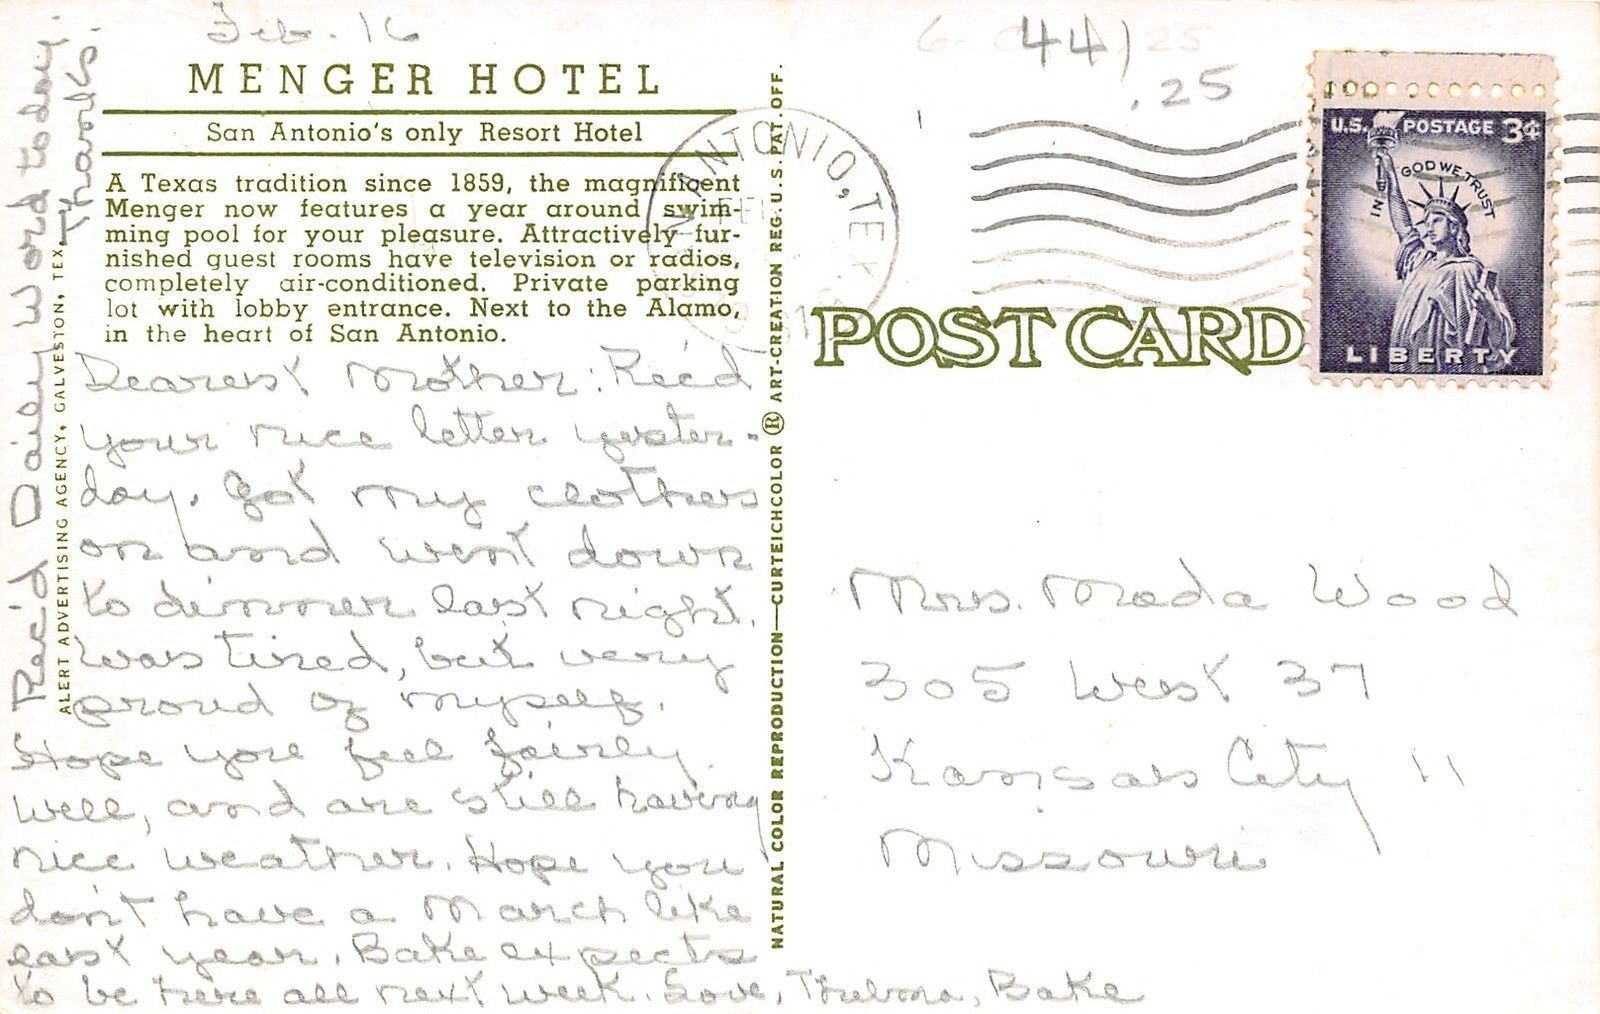 Feb. 16
MENGER HOTEL
San Antonio's only Resort Hotel
A Texas tradition since 1859, the magnificent
Menger now features a year around swim-
ming pool for your pleasure. Attractively fur-
nished guest rooms have television or radios,
completely air-conditioned. Private parking
lot with lobby entrance. Next to the Alamo,
in the heart of San Antonio.
Dearest Mother: Rec'd
your nice letter yester-
day. Got my clothes
on and went down
to dinner last night.
Was tired, but very
proud of myself.
Hope you feel fairly
well, and are still having
nice weather. Hope you
don't have a March like
last year. Bake expects
to be here all next week. Love, Thelma, Bake
Rec'd Daily Word today.
Thanks.
ALERT ADVERTISING AGENCY, GALVESTON, TEX.
NATURAL COLOR REPRODUCTION—CURTEICHCOLOR ® ART-CREATION REG. U.S. PAT. OFF.
44)
.25
25
SAN ANTONIO, TEX.
U.S. POSTAGE 3¢
IN GOD WE TRUST
LIBERTY
POST CARD
Mrs. Mada Wood
305 West 37
Kansas City 11
Missouri